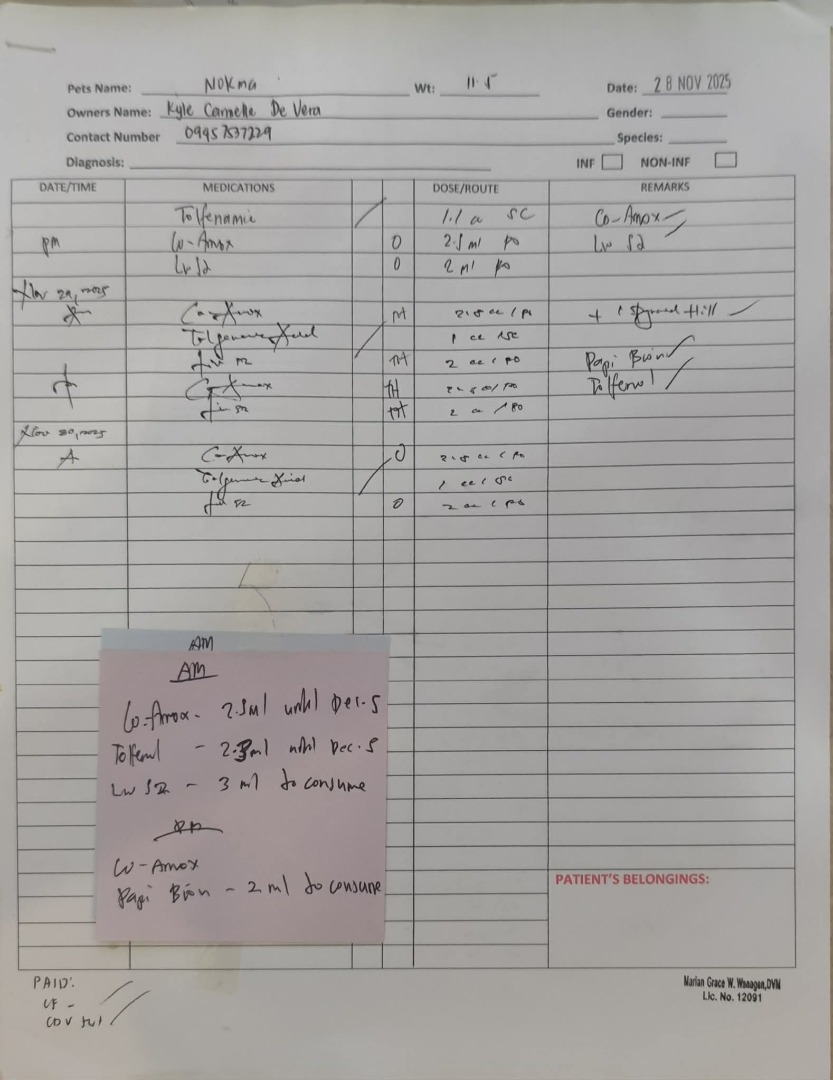 Pets Name: Nokma Wt: 11.5 Date: 28 NOV 2025
Owners Name: Kyle Camelle De Vera Gender:
Contact Number 09957537229 Species:
Diagnosis: INF NON-INF
DATE/TIME MEDICATIONS DOSE/ROUTE REMARKS
Tolfenamic 1.1 SC Co-Amox
pm Co-Amox O 2.5 ml po Liv 52
Liv 52 O 2 ml po
Nov 29, 2025
Co-Amox TH 2.5 cc / po + 1
Tolfenamic Acid 1 cc / SC
Liv 52 TH 2 cc / po Papi Bion
Co-Amox TH 2.5 cc / po Tolfenol
Liv 52 TH 2 cc / po
Nov 30, 2025
A Co-Amox O 2.5 cc / po
Tolfenamic Acid 1 cc / SC
Liv 52 O 2 cc / po
AM
AM
Co-Amox - 2.5ml until Dec. 5
Tolfenol - 2.3ml until Dec. 5
Liv 52 - 3 ml to consume
PM
Co-Amox
Papi Bion - 2 ml to consume
PATIENT'S BELONGINGS:
PAID:
CF -
CDV
Marian Grace W. Wanagen, DVM
Lic. No. 12091